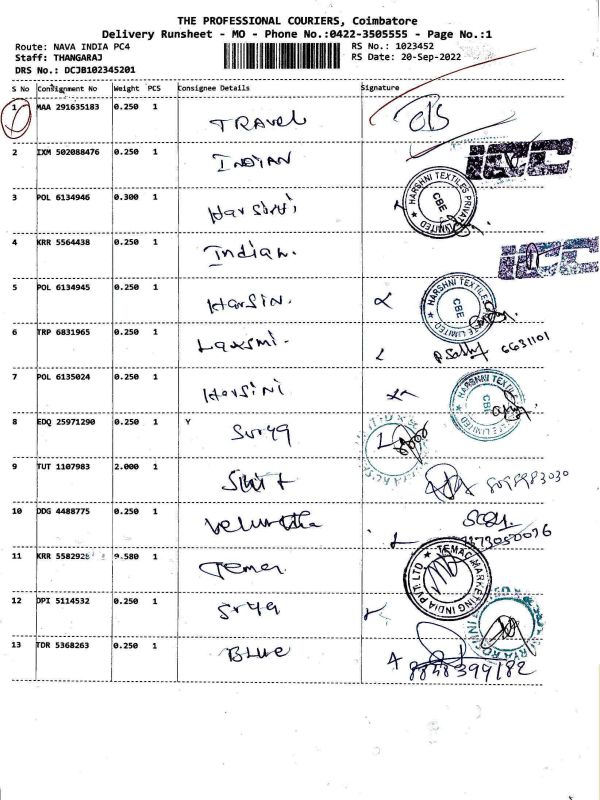 THE PROFESSIONAL COURIERS, Coimbatore
Delivery Runsheet - MO - Phone No.:0422-3505555 - Page No.:1
Route: NAVA INDIA PC4 RS No.: 1023452
Staff: THANGARAJ RS Date: 20-Sep-2022
DRS No.: DCJB102345201
S No Consignment No Weight PCS Consignee Details Signature
1 MAA 291635183 0.250 1 TRAVEL
2 IXM 502088476 0.250 1 INDIAN ICC
3 POL 6134946 0.300 1 Harsini HARSHNI TEXTILES PRIVATE LIMITED CBE
4 KRR 5564438 0.250 1 Indian. ICC
5 POL 6134945 0.250 1 Harsin. HARSHNI TEXTILES LIMITED CBE
6 TRP 6831965 0.250 1 Laxsmi. 6631101
7 POL 6135024 0.250 1 Harsini HARSHNI TEXTILES LIMITED CBE
8 EDQ 25971290 0.250 1 Y Surya
9 TUT 1107983 2.000 1
10 DDG 4488775 0.250 1
11 KRR 5582928 9.580 1 Temac TEMAC MARKETING INDIA PVT. LTD
12 DPI 5114532 0.250 1 Surya
13 TDR 5368263 0.250 1 BLUE